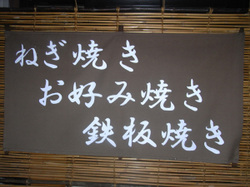 ねぎ焼き
お好み焼き
鉄板焼き